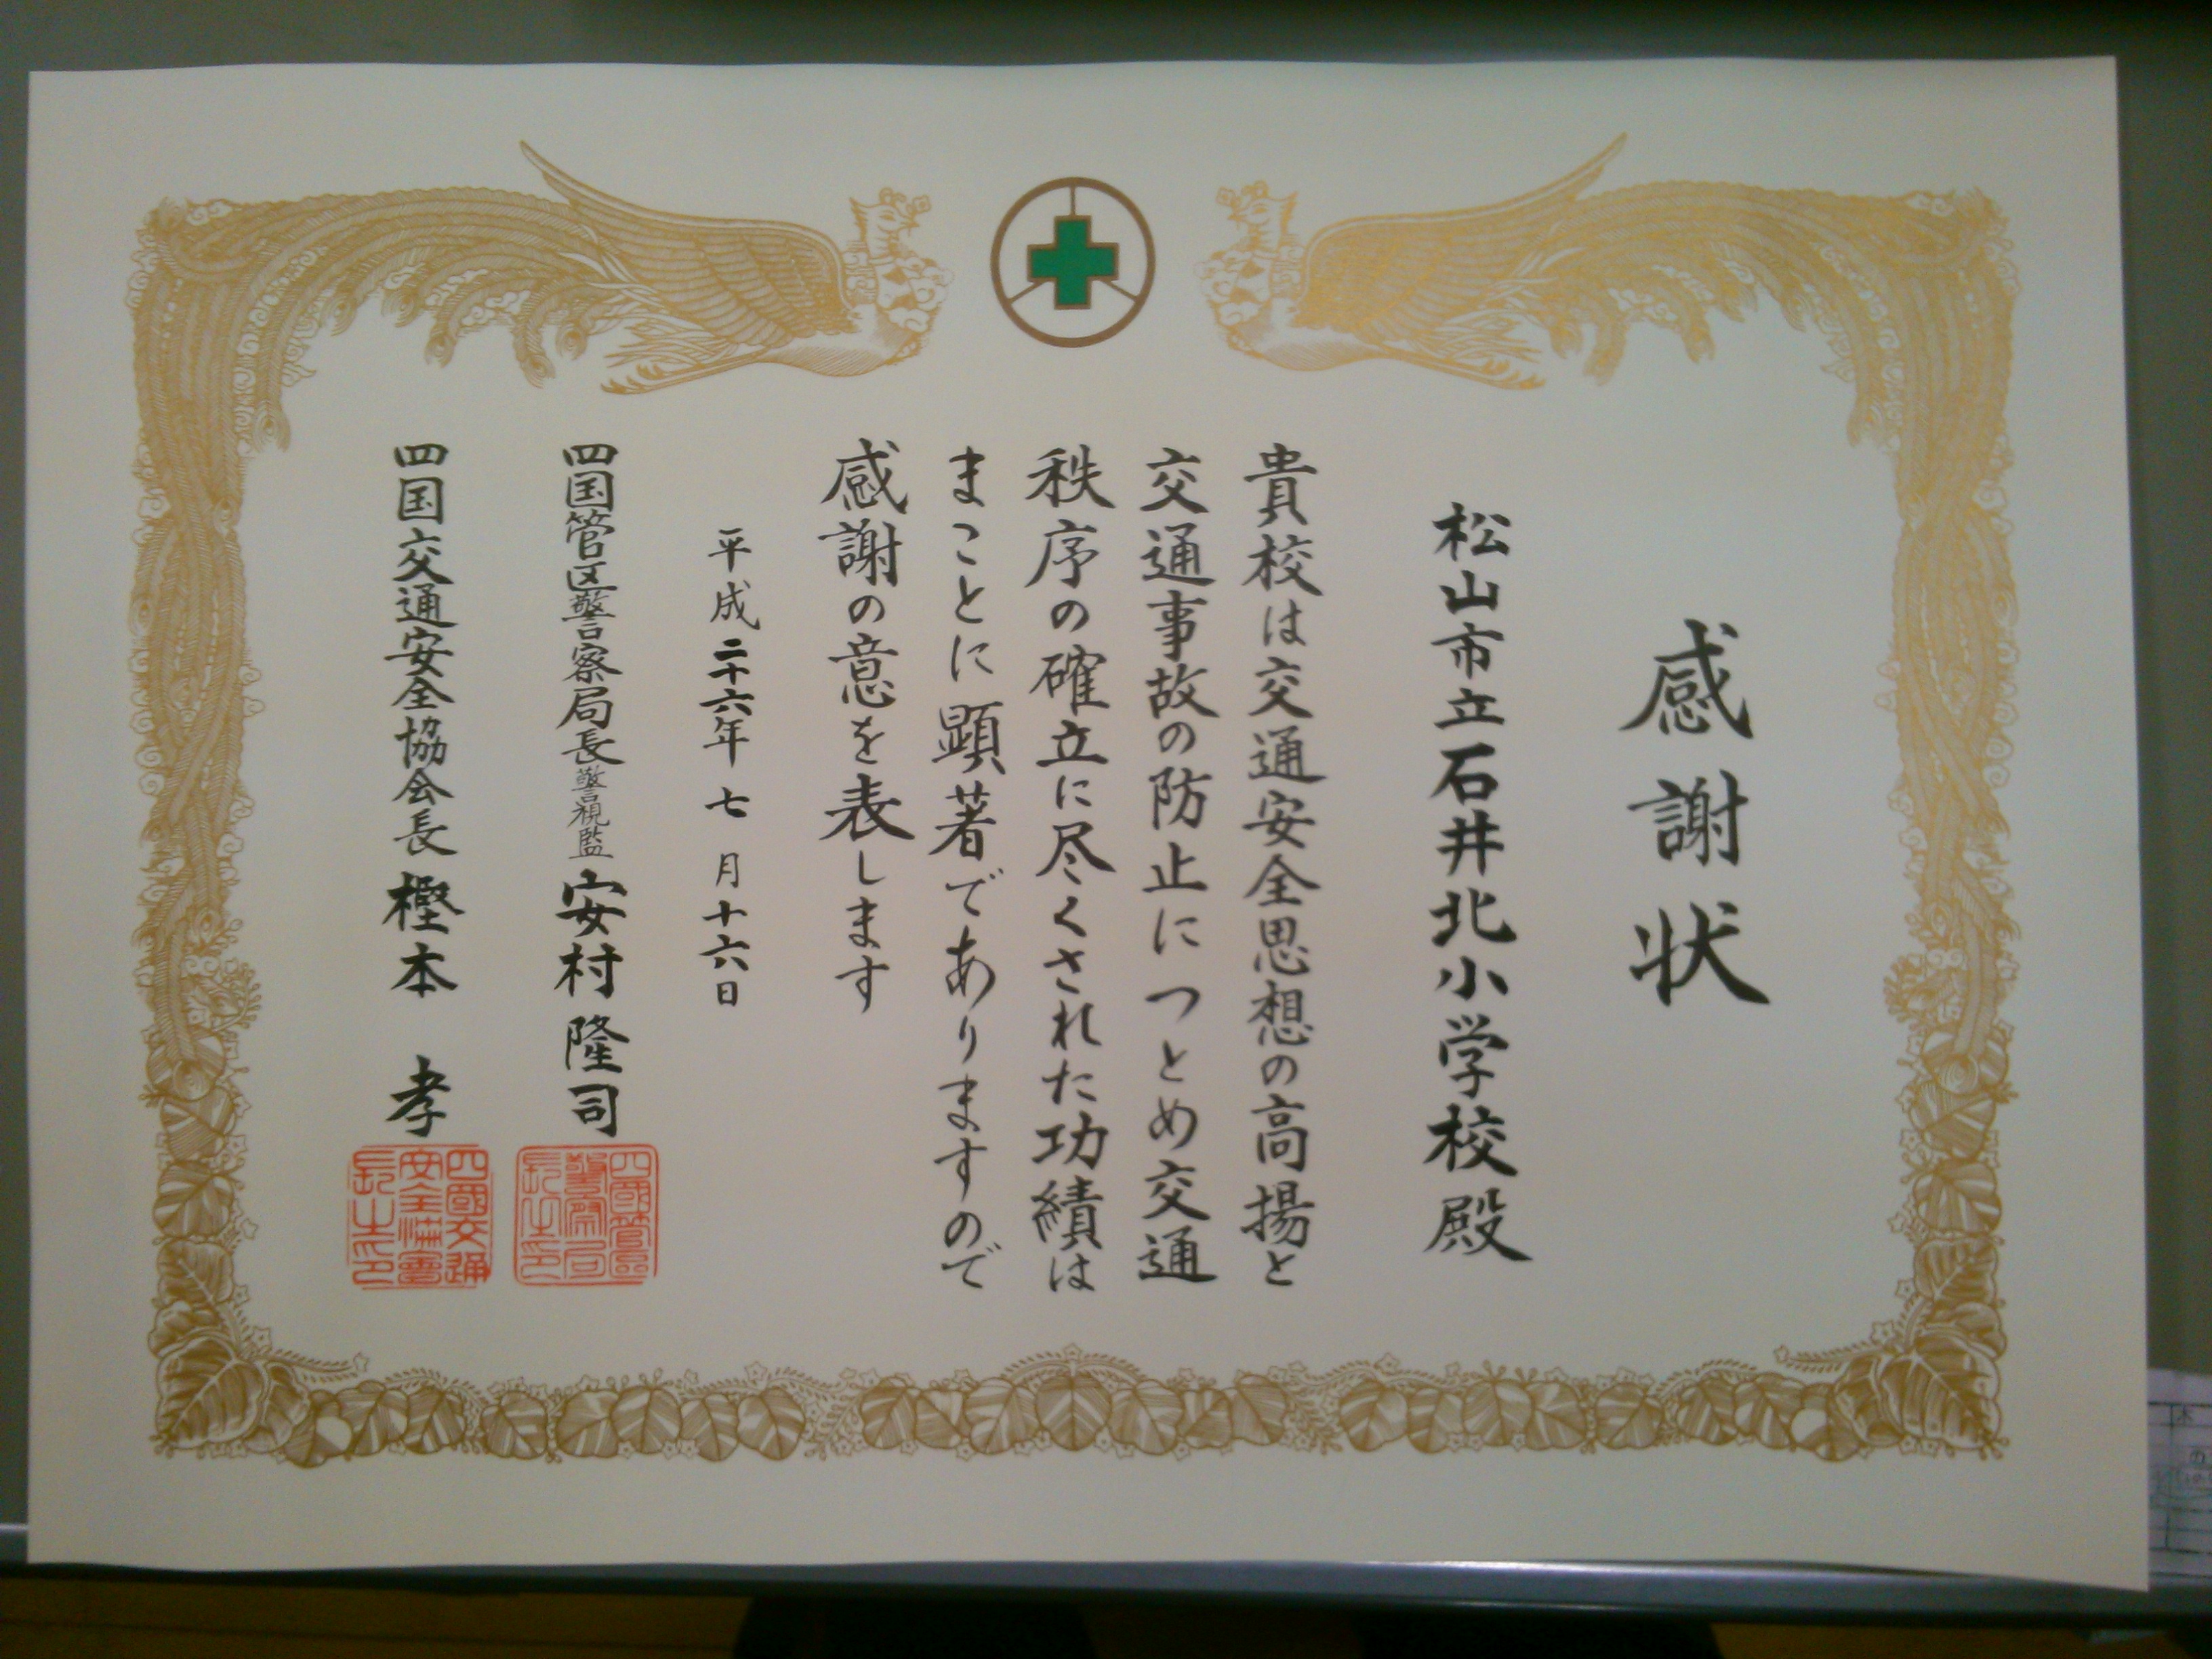 感謝状
松山市立石井北小学校殿
貴校は交通安全思想の高揚と
交通事故の防止につとめ交通
秩序の確立に尽くされた功績は
まことに顕著でありますので
感謝の意を表します
平成二十六年七月十六日
四国管区警察局長警視監 安村隆司
四国交通安全協会長 樫本 孝
四國管區
警察局
長之印
四國交通
安全協會
長之印